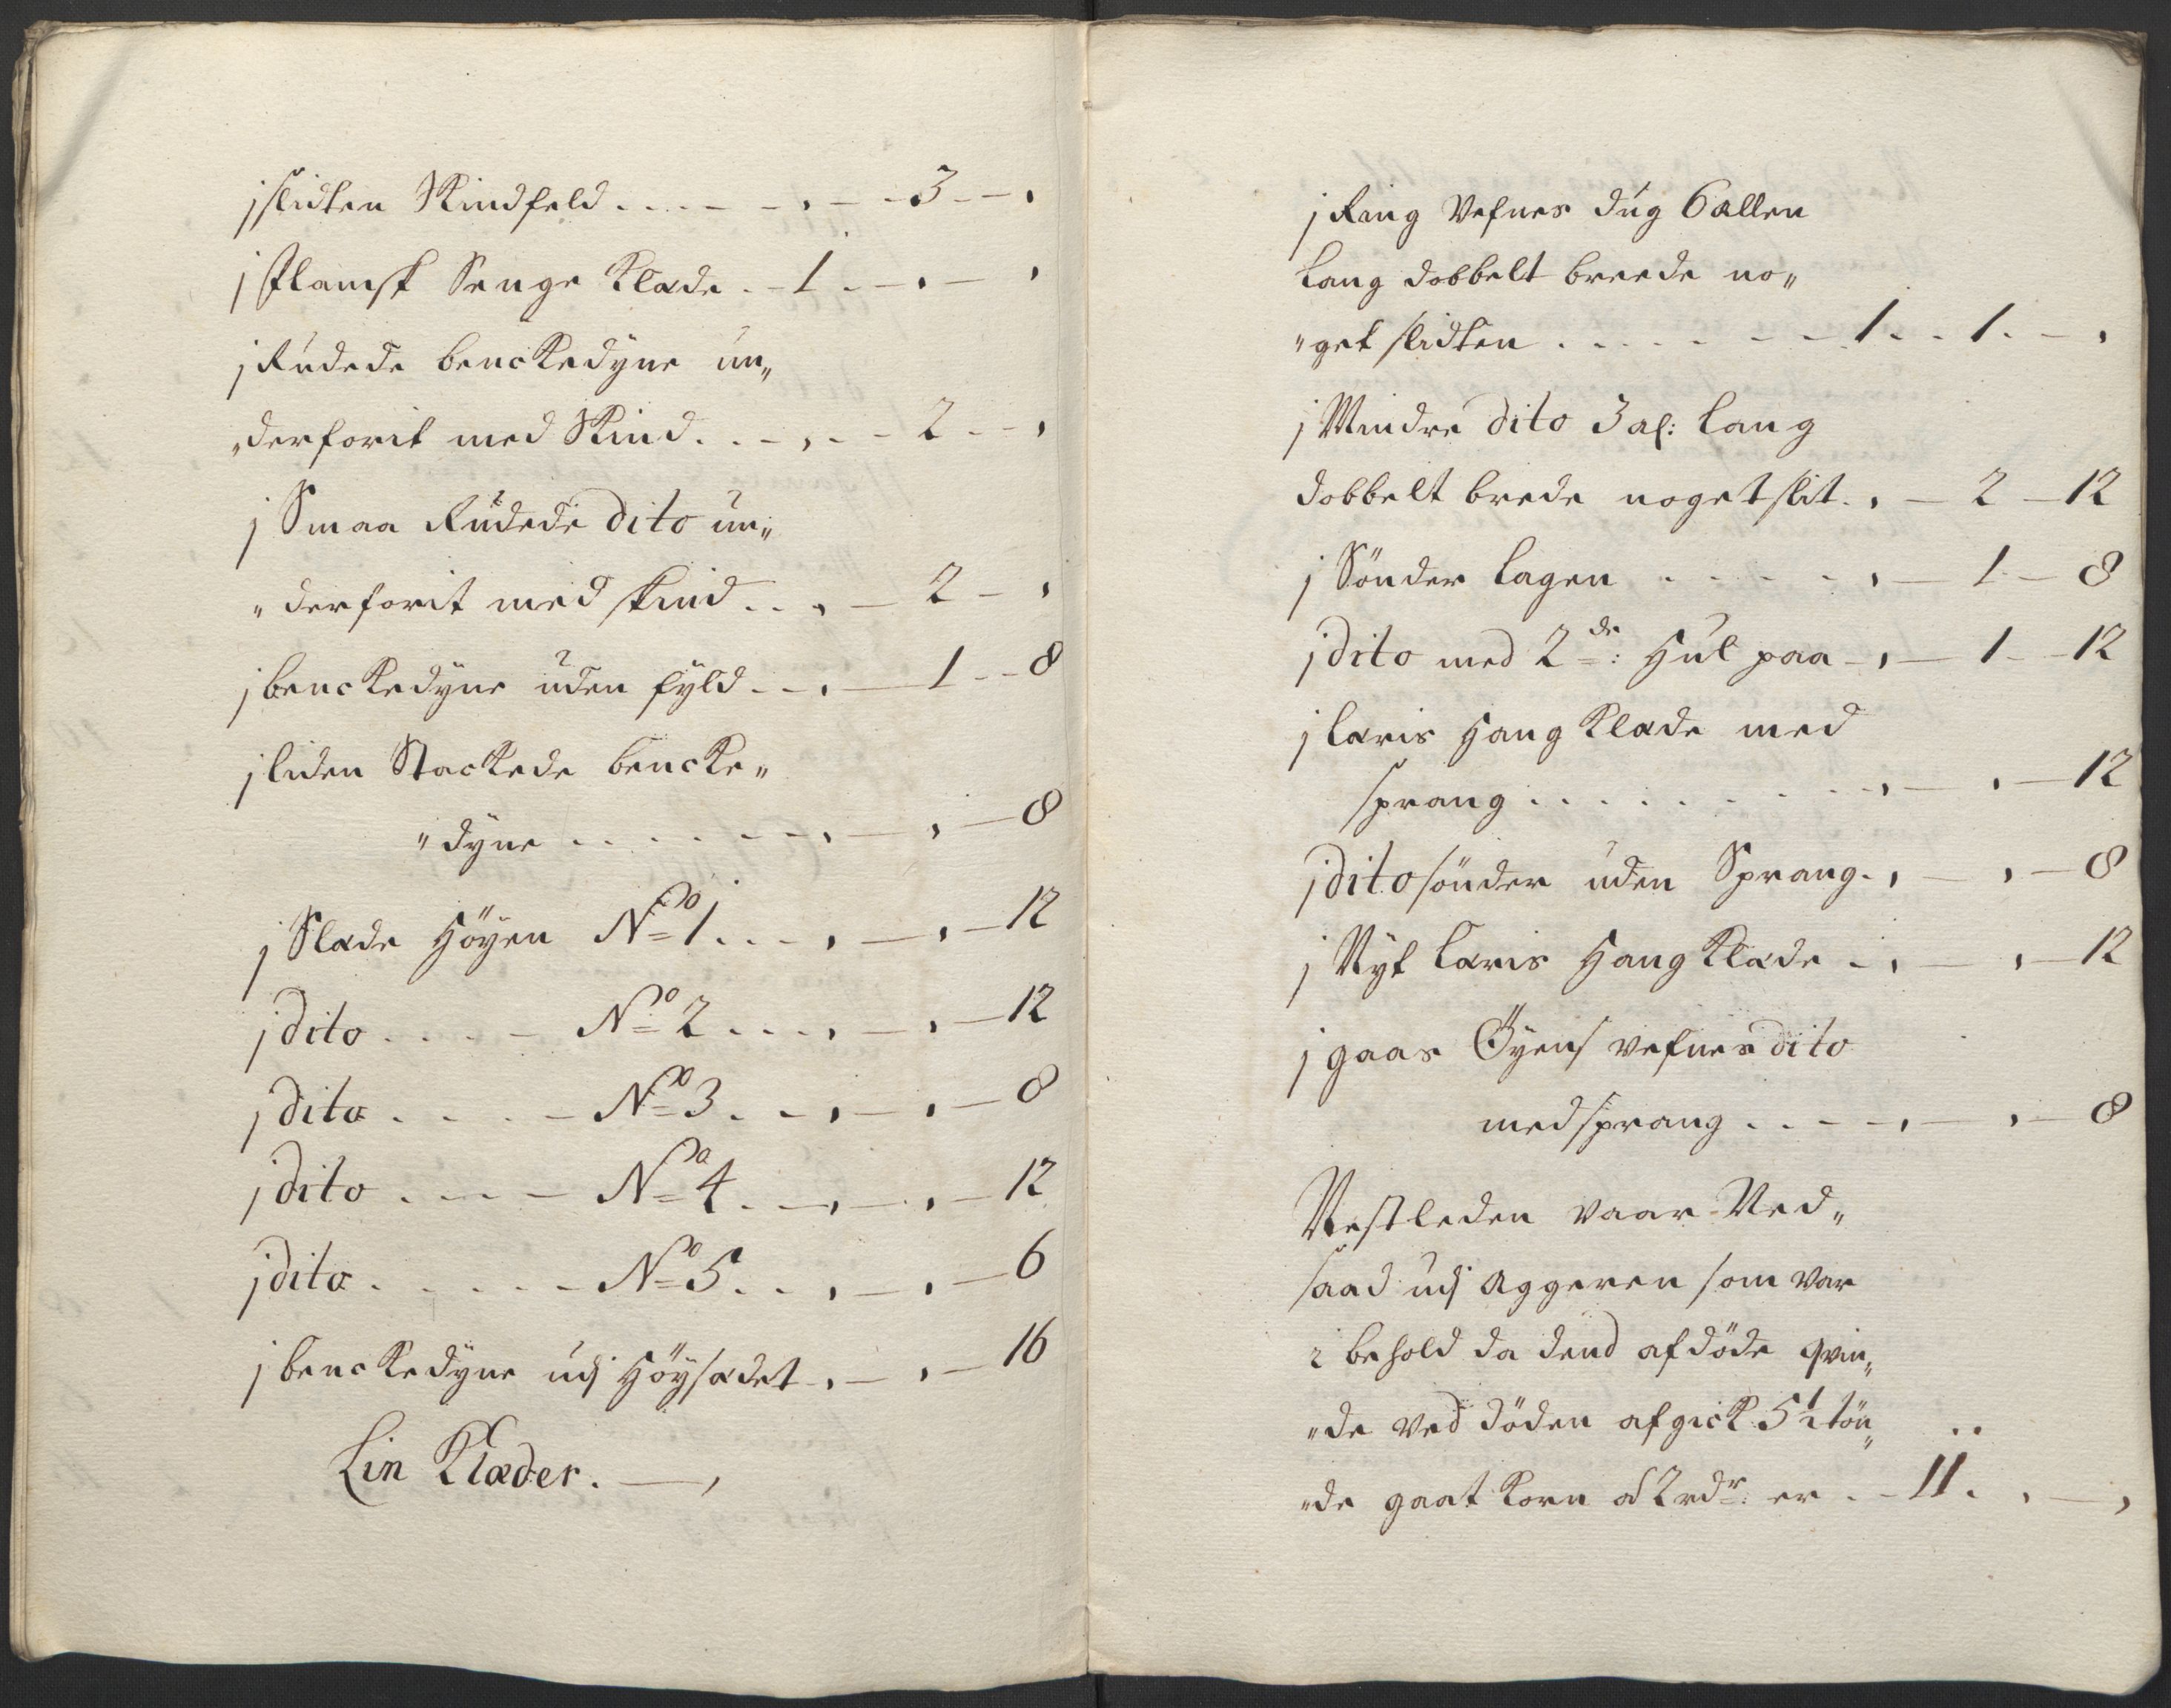 j slidten Skindfeld . . . . - - , - - 3 - - ,
j Flamsk Senge Klæde . - 1 . - , - ,
j Rudede benckedyne un„
„derforit med Skind . . - , . - 2 - - ,
j Smaa Rudede dito un„
„derforit med skind . . , - 2 - ,
j benckedyne uden fyld - - , - 1 - - 8
j liden Stackede bencke„
„dyne . . . . . - - , - , - 8
j Slæde Höyen No 1 . . . , - , - 12
j dito . . . - No 2 . . . , - , - 12
j dito . . . - No 3 . - , - , - 8
j dito . . . - No 4 . - , - , - 12
j dito . . . . - No 5 . . , - , - 6
j benckedyne udj Höysædet - , - , - 16
Lin Klæder. - ,
j Ring Vefnes dug 6 allen
lang dobbelt breede no„
„get slidten . . . . . - - 1 - - 1 . - ,
j Mindre dito 3 al: lang
dobbelt brede noget slit . , - 2 - 12
j Sönder lagen . . . . - , - 1 - 8
j dito med 2de: Hul paa - , - 1 - - 12
j læris Hang Klæde med
sprang . . . . . . . . - , - , - 12
j dito sönder uden Sprang . , - , - 8
j Nyt læris Hang Klæde - , - , - 12
j gaas Öyens vefnes dito
med sprang . . - - , - , - 8
Nestleden vaar Ned„
saad udj Aggeren som var
i behold da dend afdöde qvin„
„de ved döden afgick 5 1/2 tön„
„de gaat Korn á 2 rdr: er . - 11 . , - ,